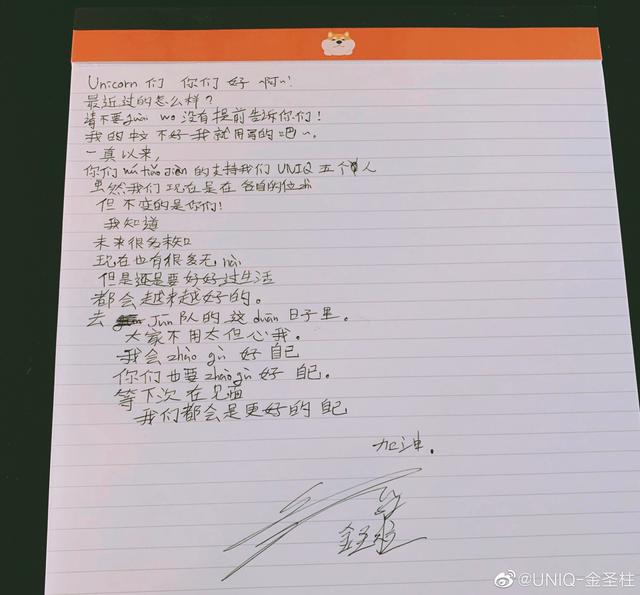 Unicorn 们 你们 好 啊~!
最近过的怎么样?
请不要 guài wo 没有提前告诉你们!
我的中文 不好 我就用写的 吧~.
一真以来,
你们 的支持我们 UNIQ 五个人
虽然我们 现在是在 各自的位
但 不变的是你们!
我知道
未来很多未知
现在也有很多无 nài
但是还是要好好过生活
都会越来越好的。
去 Jūn 队的 这 duān 日子里。
大家不用太但心我。
我会 zhào gù 好 自己
你们也要 zhào gù 好 自己.
等下次 在 见面
我们都会是更好的 自己
加油.
@UNIQ-金圣柱